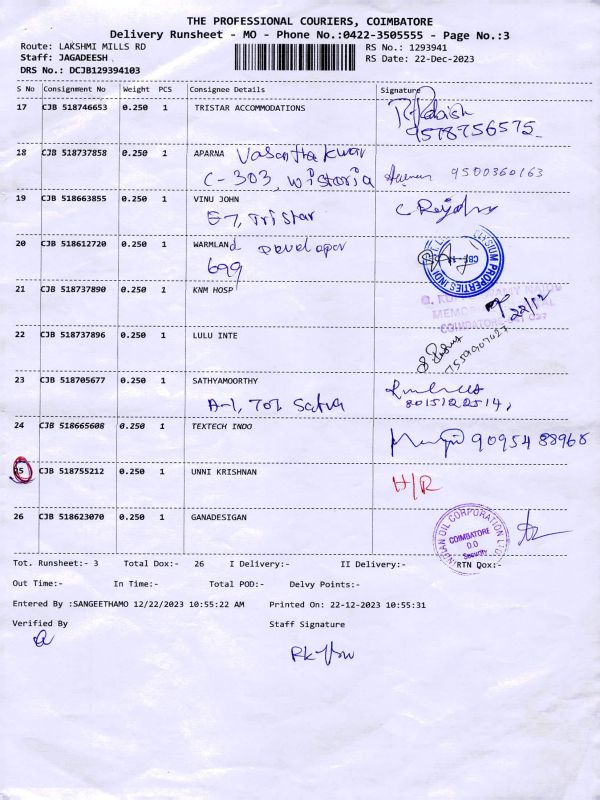 THE PROFESSIONAL COURIERS, COIMBATORE
Delivery Runsheet - MO - Phone No.:0422-3505555 - Page No.:3
Route: LAKSHMI MILLS RD RS No.: 1293941
Staff: JAGADEESH RS Date: 22-Dec-2023
DRS No.: DCJB129394103
S No Consignment No Weight PCS Consignee Details Signature
17 CJB 518746653 0.250 1 TRISTAR ACCOMMODATIONS
9578756575
18 CJB 518737858 0.250 1 APARNA Vasantha kwar
C-303, wistoria 9500360163
19 CJB 518663855 0.250 1 VINU JOHN
E7, Tristar
20 CJB 518612720 0.250 1 WARMLANd Developer
699
21 CJB 518737890 0.250 1 KNM HOSP
22/12
22 CJB 518737896 0.250 1 LULU INTE
23 CJB 518705677 0.250 1 SATHYAMOORTHY
A-1, 701 Satva 8015122514,
24 CJB 518665608 0.250 1 TEXTECH INDO 9095488968
25 CJB 518755212 0.250 1 UNNI KRISHNAN H/R
26 CJB 518623070 0.250 1 GANADESIGAN
INDIAN OIL CORPORATION LTD
COIMBATORE
D.O
Security
Tot. Runsheet:- 3 Total Dox:- 26 I Delivery:- II Delivery:- RTN Dox:-
Out Time:- In Time:- Total POD:- Delvy Points:-
Entered By :SANGEETHAMO 12/22/2023 10:55:22 AM Printed On: 22-12-2023 10:55:31
Verified By Staff Signature